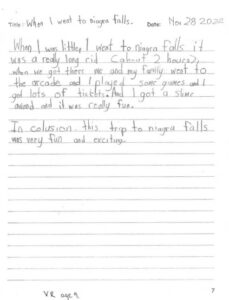 Title: When I went to niagra falls. Date: Nov 28 2022
When I was little, I went to niagra falls it
was a realy long rid (about 2 hours?)
when we got there me and my family went to
the arcade and I played some games and I
got lots of tickets. And I got a slime
and it was really fun.
In colusion, this trip to niagra falls
was very fun and exciting.
VR age 9
7